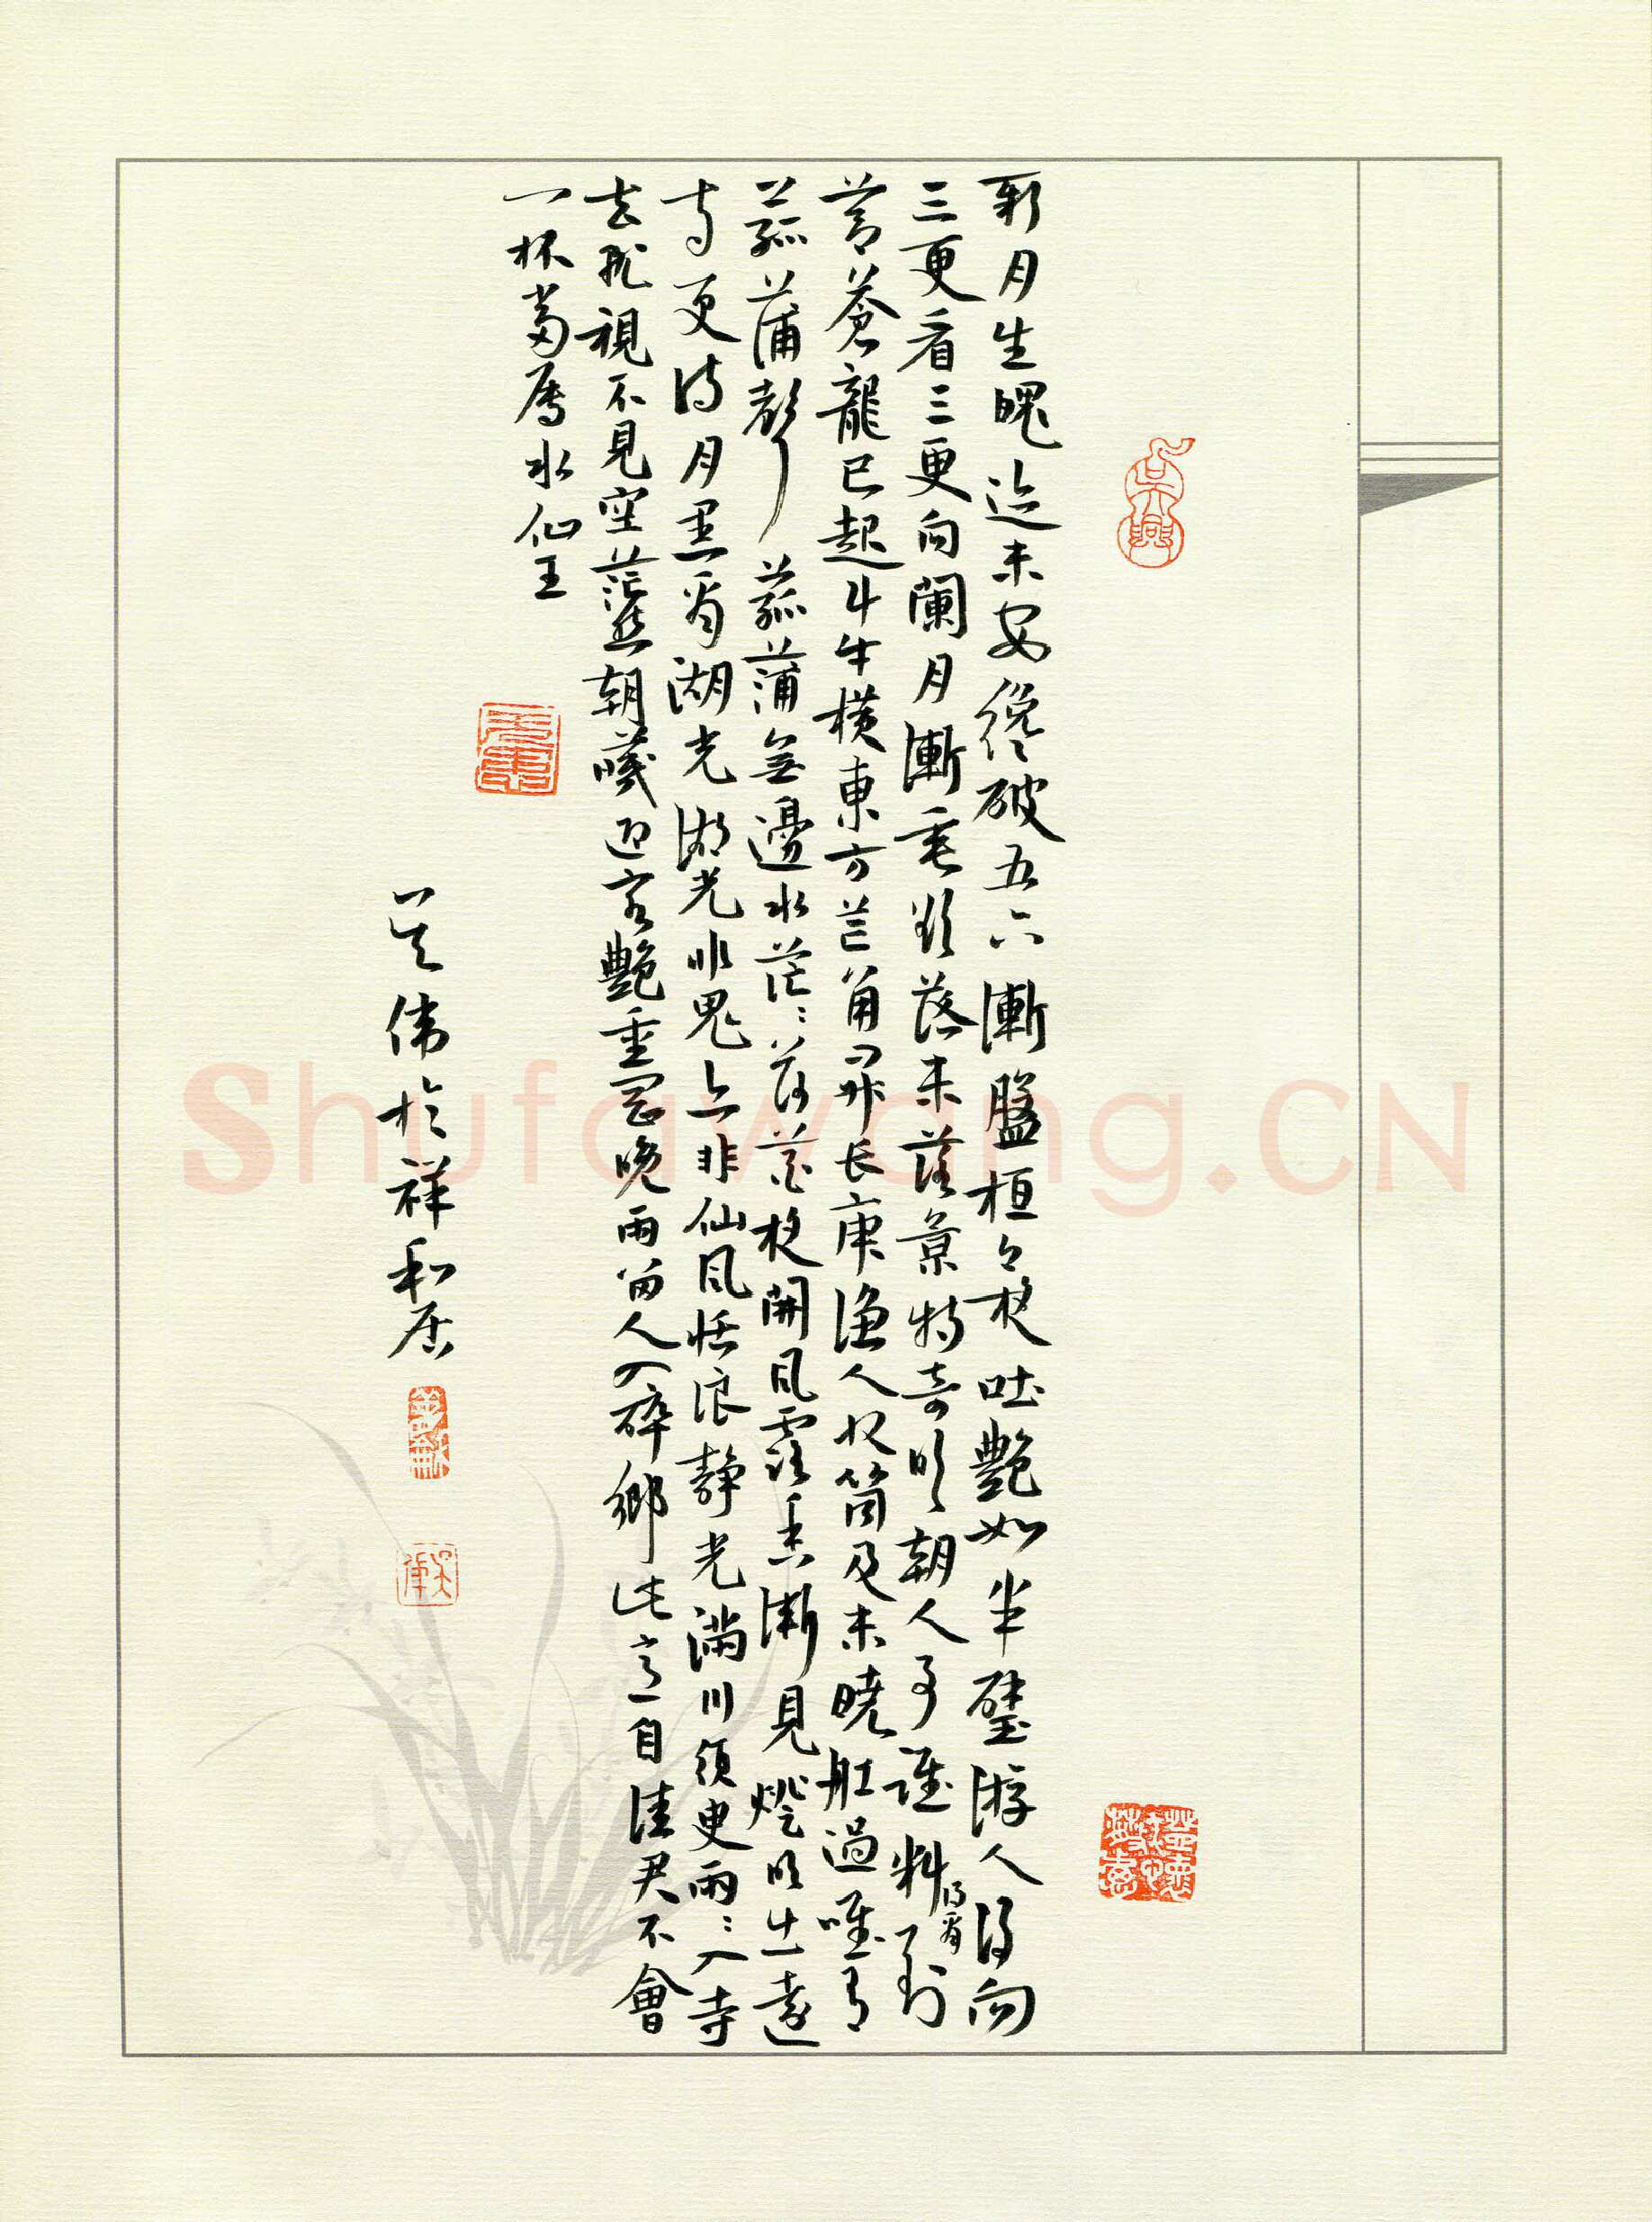 新月生魄迹未安纔破五六漸盤桓今夜吐艷如半璧游人得向
三更看三更向闌月漸垂欲落未落景特奇明朝人事誰料得看到
蒼蒼龍已起斗牛橫東方芒角昇长庚漁人收筒及未曉船過唯有
菰蒲聲菰蒲無邊水茫茫荷花夜開風露香漸見燈明出遠
寺更待月黑看湖光湖光非鬼亦非仙風恬浪靜光滿川須臾兩兩入寺
去就視不見空茫然朝曦迎客艷重岡晚雨留人入醉鄉此意自佳君不會
一杯當屬水仙王
吴伟於祥和居
吳興
吴偉
Shufawang.CN